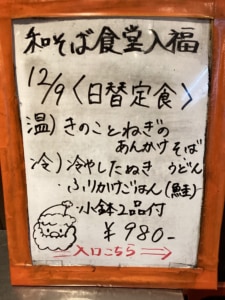 和そば食堂入福
12/9〈日替定食〉
温)きのことねぎの
あんかけそば
冷)冷やしたぬきうどん
・ふりかけごはん(鮭)
・小鉢2品付
¥980-
入口こちら→